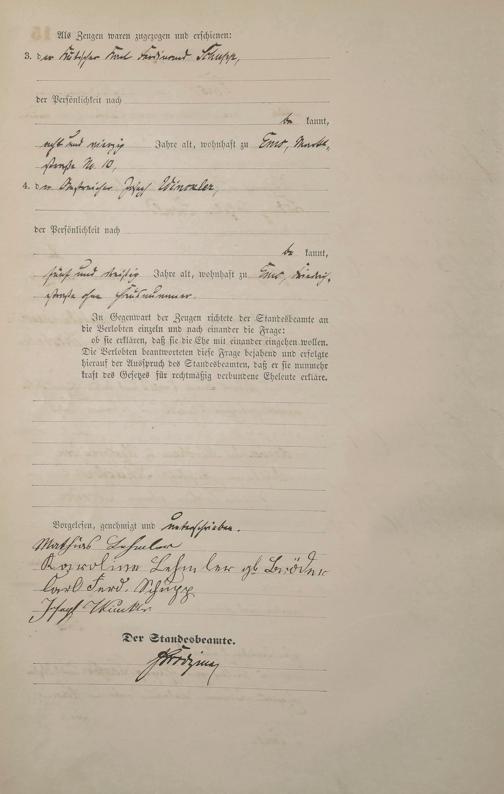 Als Zeugen waren zugezogen und erschienen:
3. der Kutscher Karl Ferdinand Schupp,
der Persönlichkeit nach
be kannt,
acht und vierzig Jahre alt, wohnhaft zu Ems, Markt-
straße No. 10,
4. der Anstreicher Josef Winkler,
der Persönlichkeit nach
be kannt,
fünf und dreißig Jahre alt, wohnhaft zu Ems, Friedrich-
straße ohne Hausnummer.
In Gegenwart der Zeugen richtete der Standesbeamte an
die Verlobten einzeln und nach einander die Frage:
ob sie erklären, daß sie die Ehe mit einander eingehen wollen.
Die Verlobten beantworteten diese Frage bejahend und erfolgte
hierauf der Ausspruch des Standesbeamten, daß er sie nunmehr
kraft des Gesetzes für rechtmäßig verbundene Eheleute erkläre.
Vorgelesen, genehmigt und unterschrieben.
Mathias Lehmler
Karoline Lehmler gb. Bröder
Carl Ferd. Schupp
Josef Winkler
Der Standesbeamte.